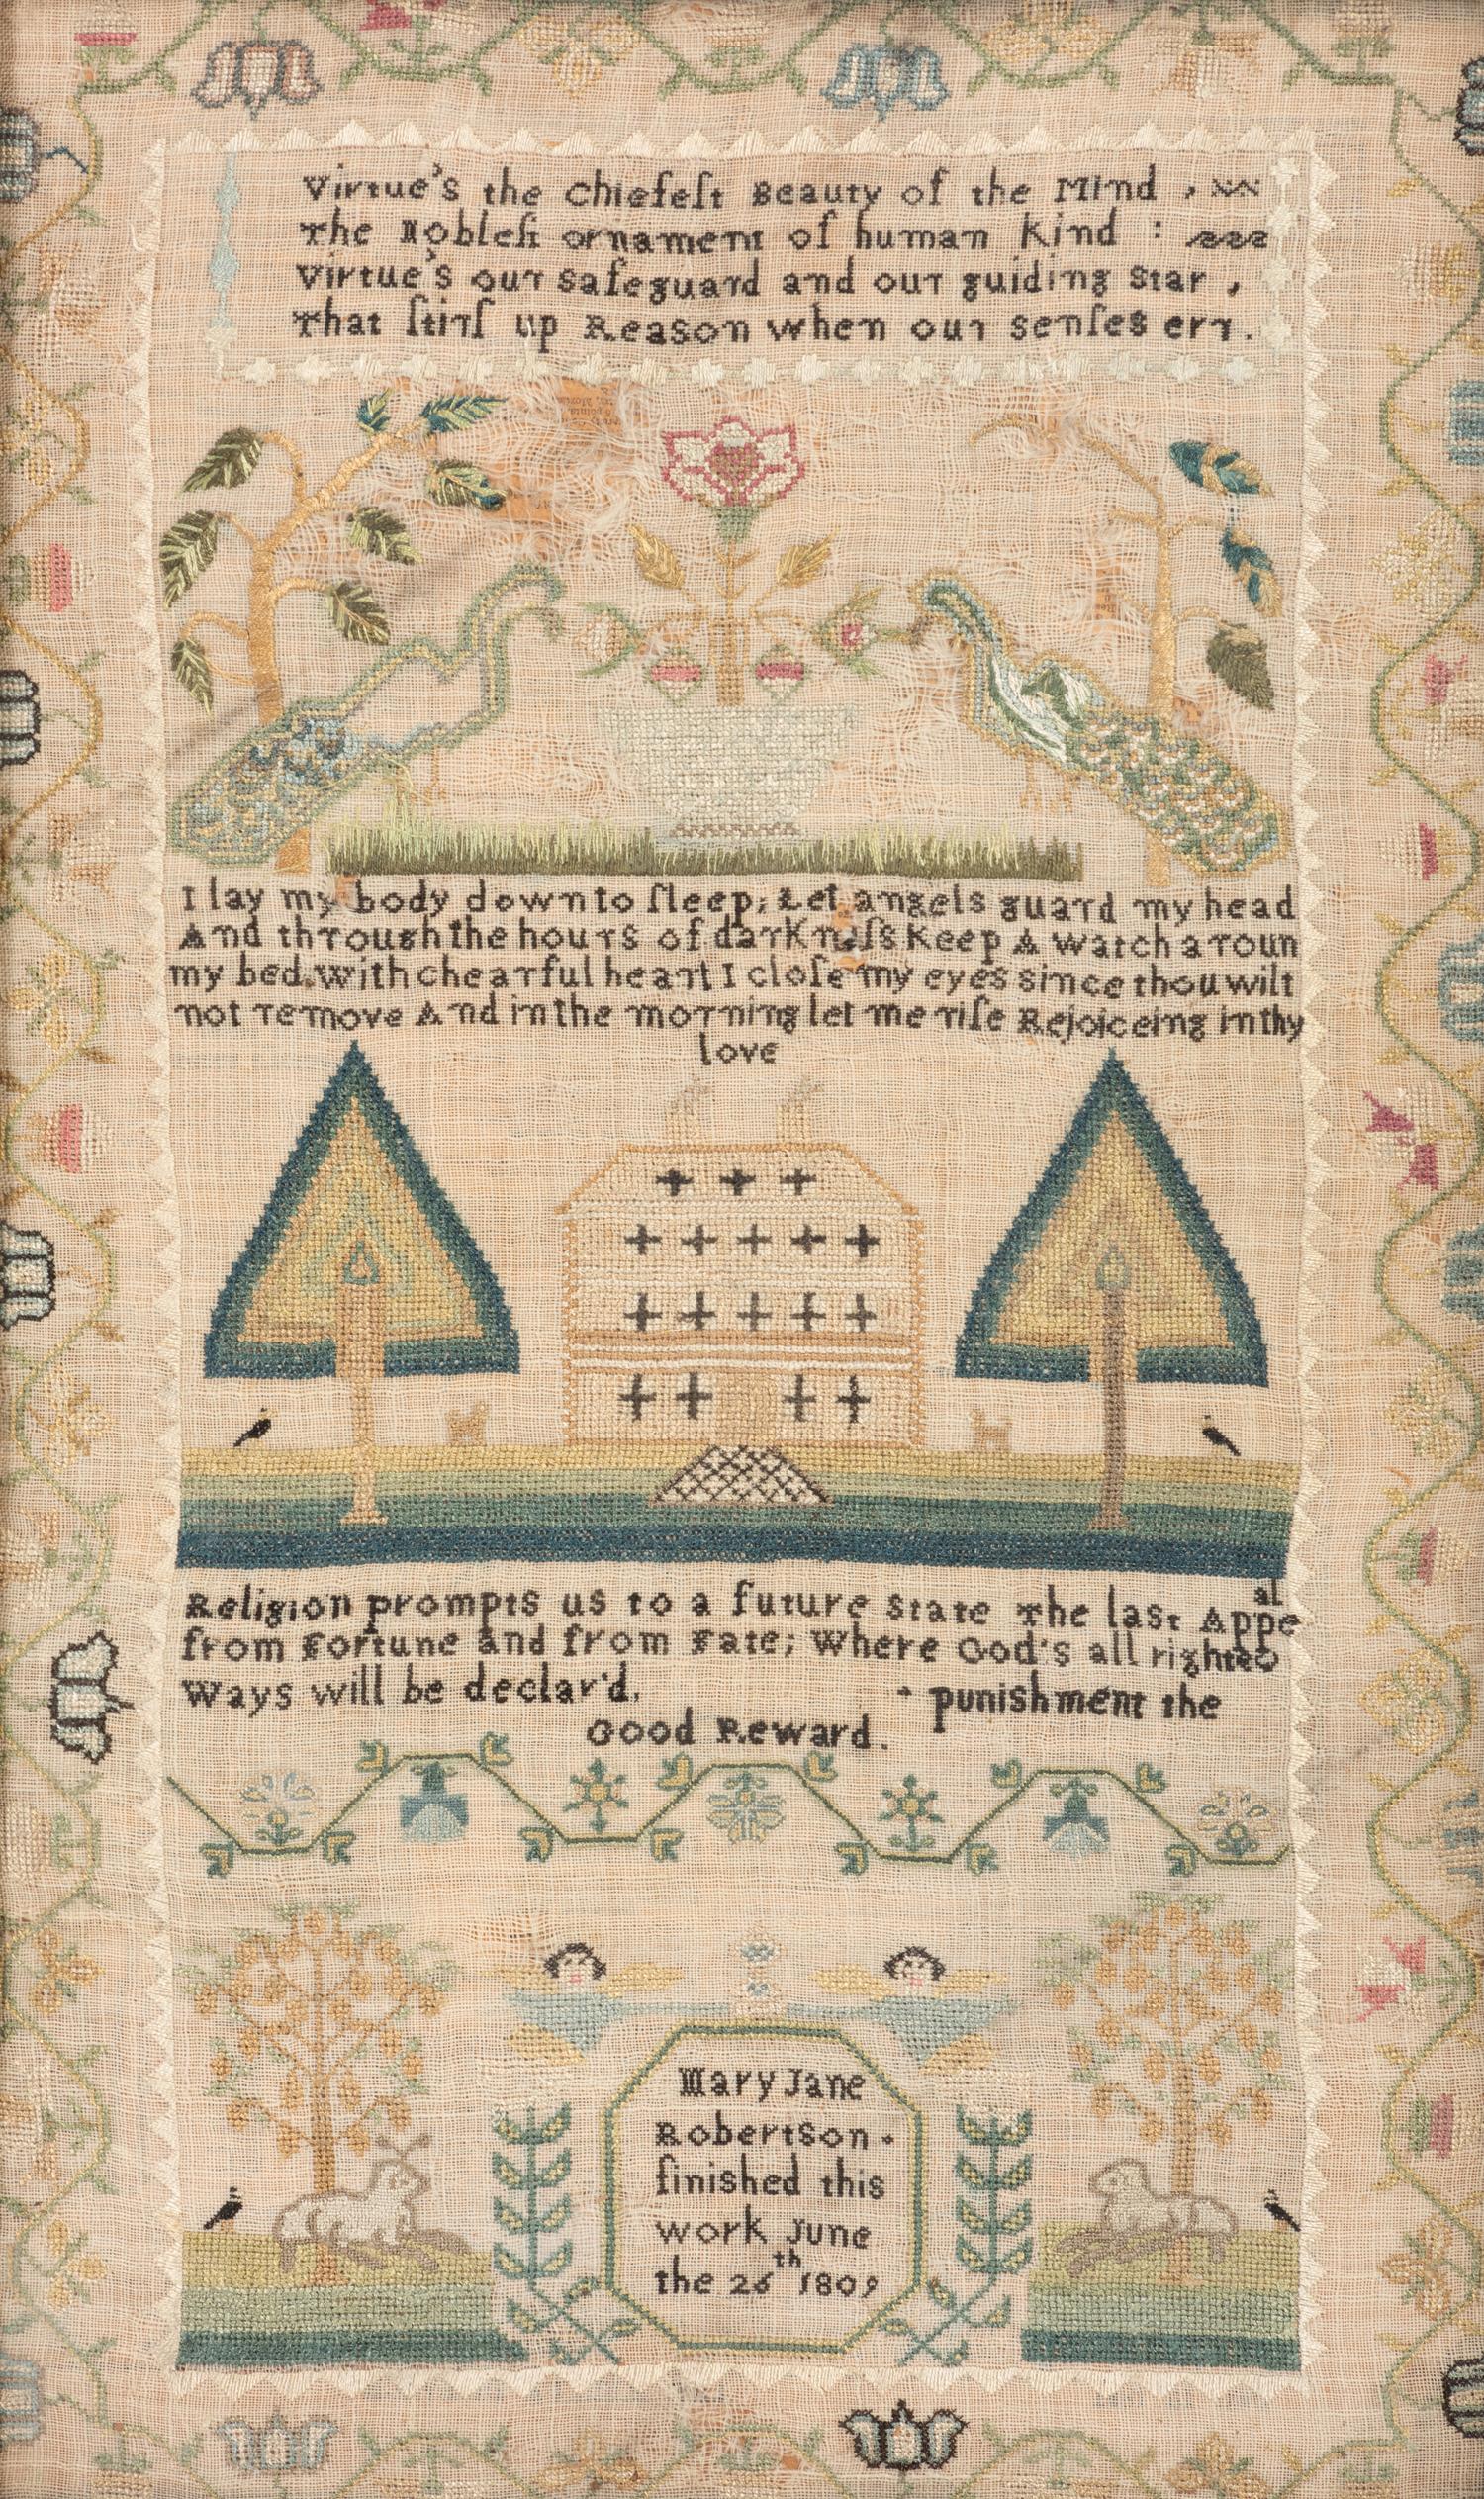 Virtue's the Chiefeſt Beauty of the Mind ,
The Nobleſt ornament of human Kind :
Virtue's our safeguard and our guiding Star ,
That ſtirſ up Reason when our senſes err.
I lay my body down to ſleep; Let angels guard my head
And through the hours of darKneſs Keep A watch a roun
my bed. with chearful heart I cloſe my eyes since thou wilt
not remove And in the morning let me riſe Rejoiceing in thy
love
Religion prompts us to a future State The last Appe
al
from Fortune And from Fate; Where God's all righteo
Ways will be declar'd. - punishment the
Good Reward.
Mary Jane
Robertson .
finished this
work June
the 26 th 1809